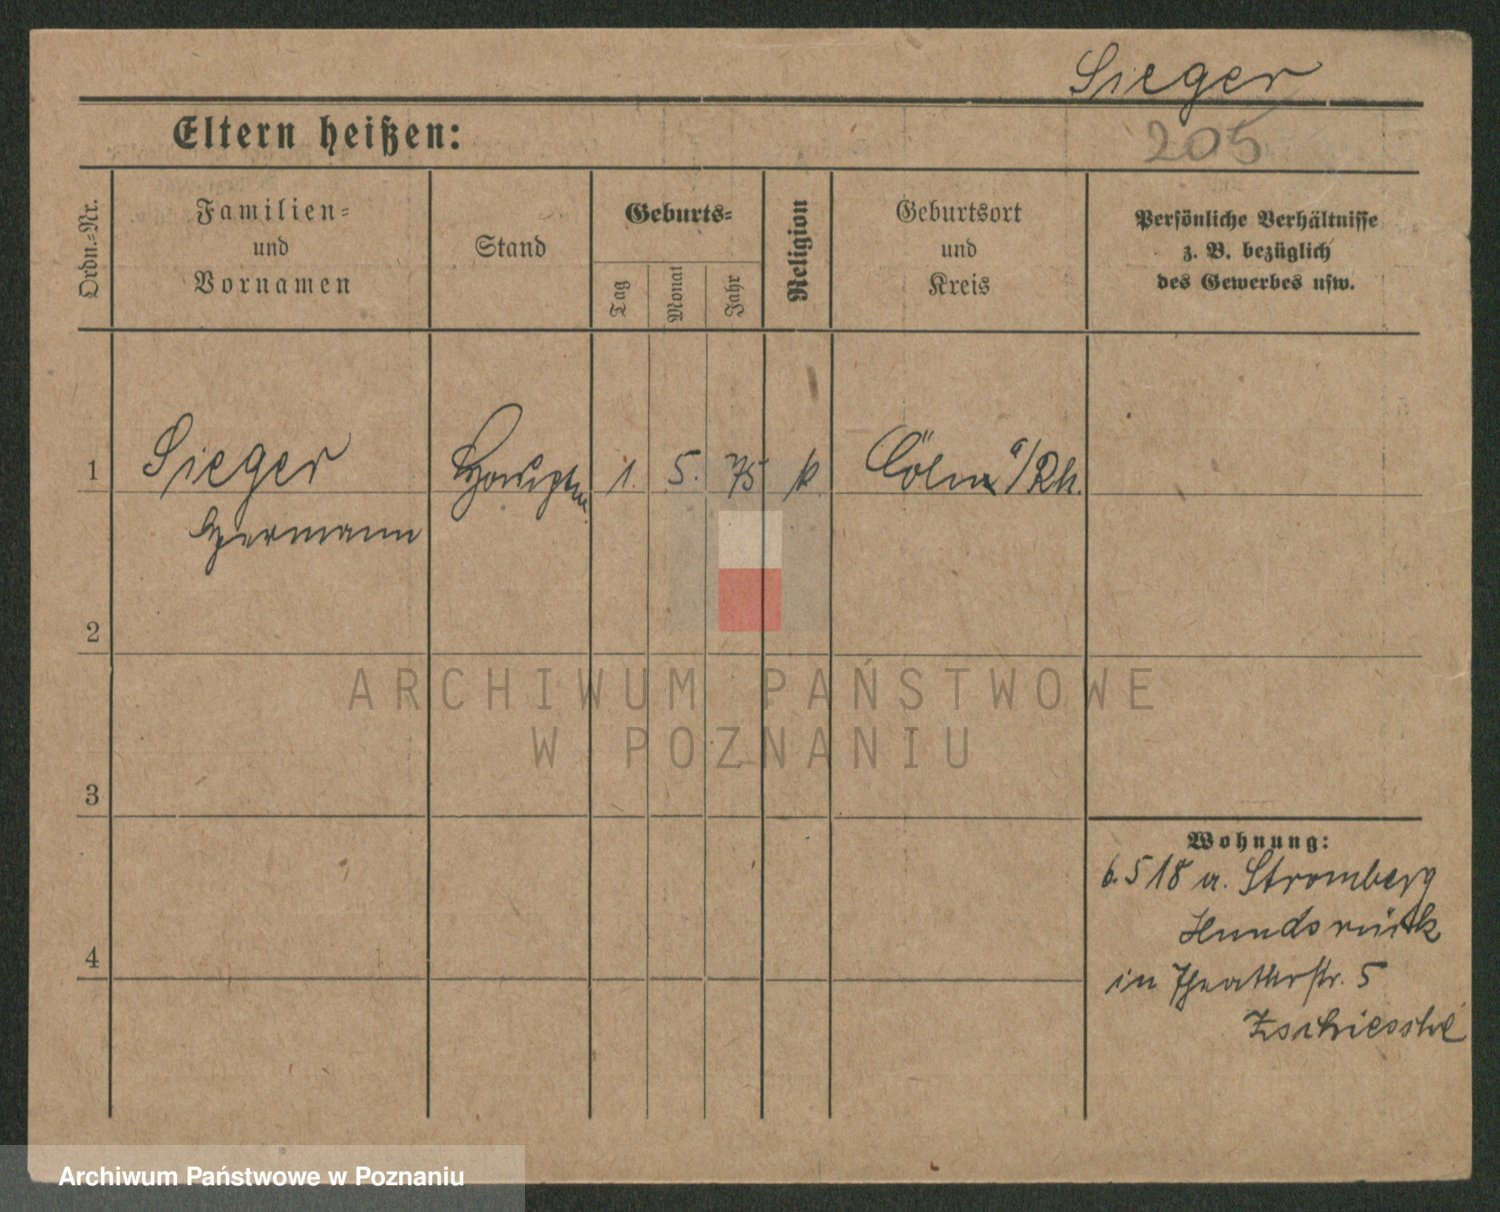 Sieger
205
Eltern heißen:
Ordn.-Nr.
Familien-
und
Vornamen
Stand
Geburts-
Tag
Monat
Jahr
Religion
Geburtsort
und
Kreis
Persönliche Verhältnisse
z. B. bezüglich
des Gewerbes usw.
1 Sieger Hauptm. 1. 5. 75 k. Cöln a/Rh.
Hermann
2
3
4
ARCHIWUM PAŃSTWOWE
W POZNANIU
Wohnung:
6.5 18 a. Stromberg
Hundsrück
in Theatherstr. 5
Zschiesche
Archiwum Państwowe w Poznaniu